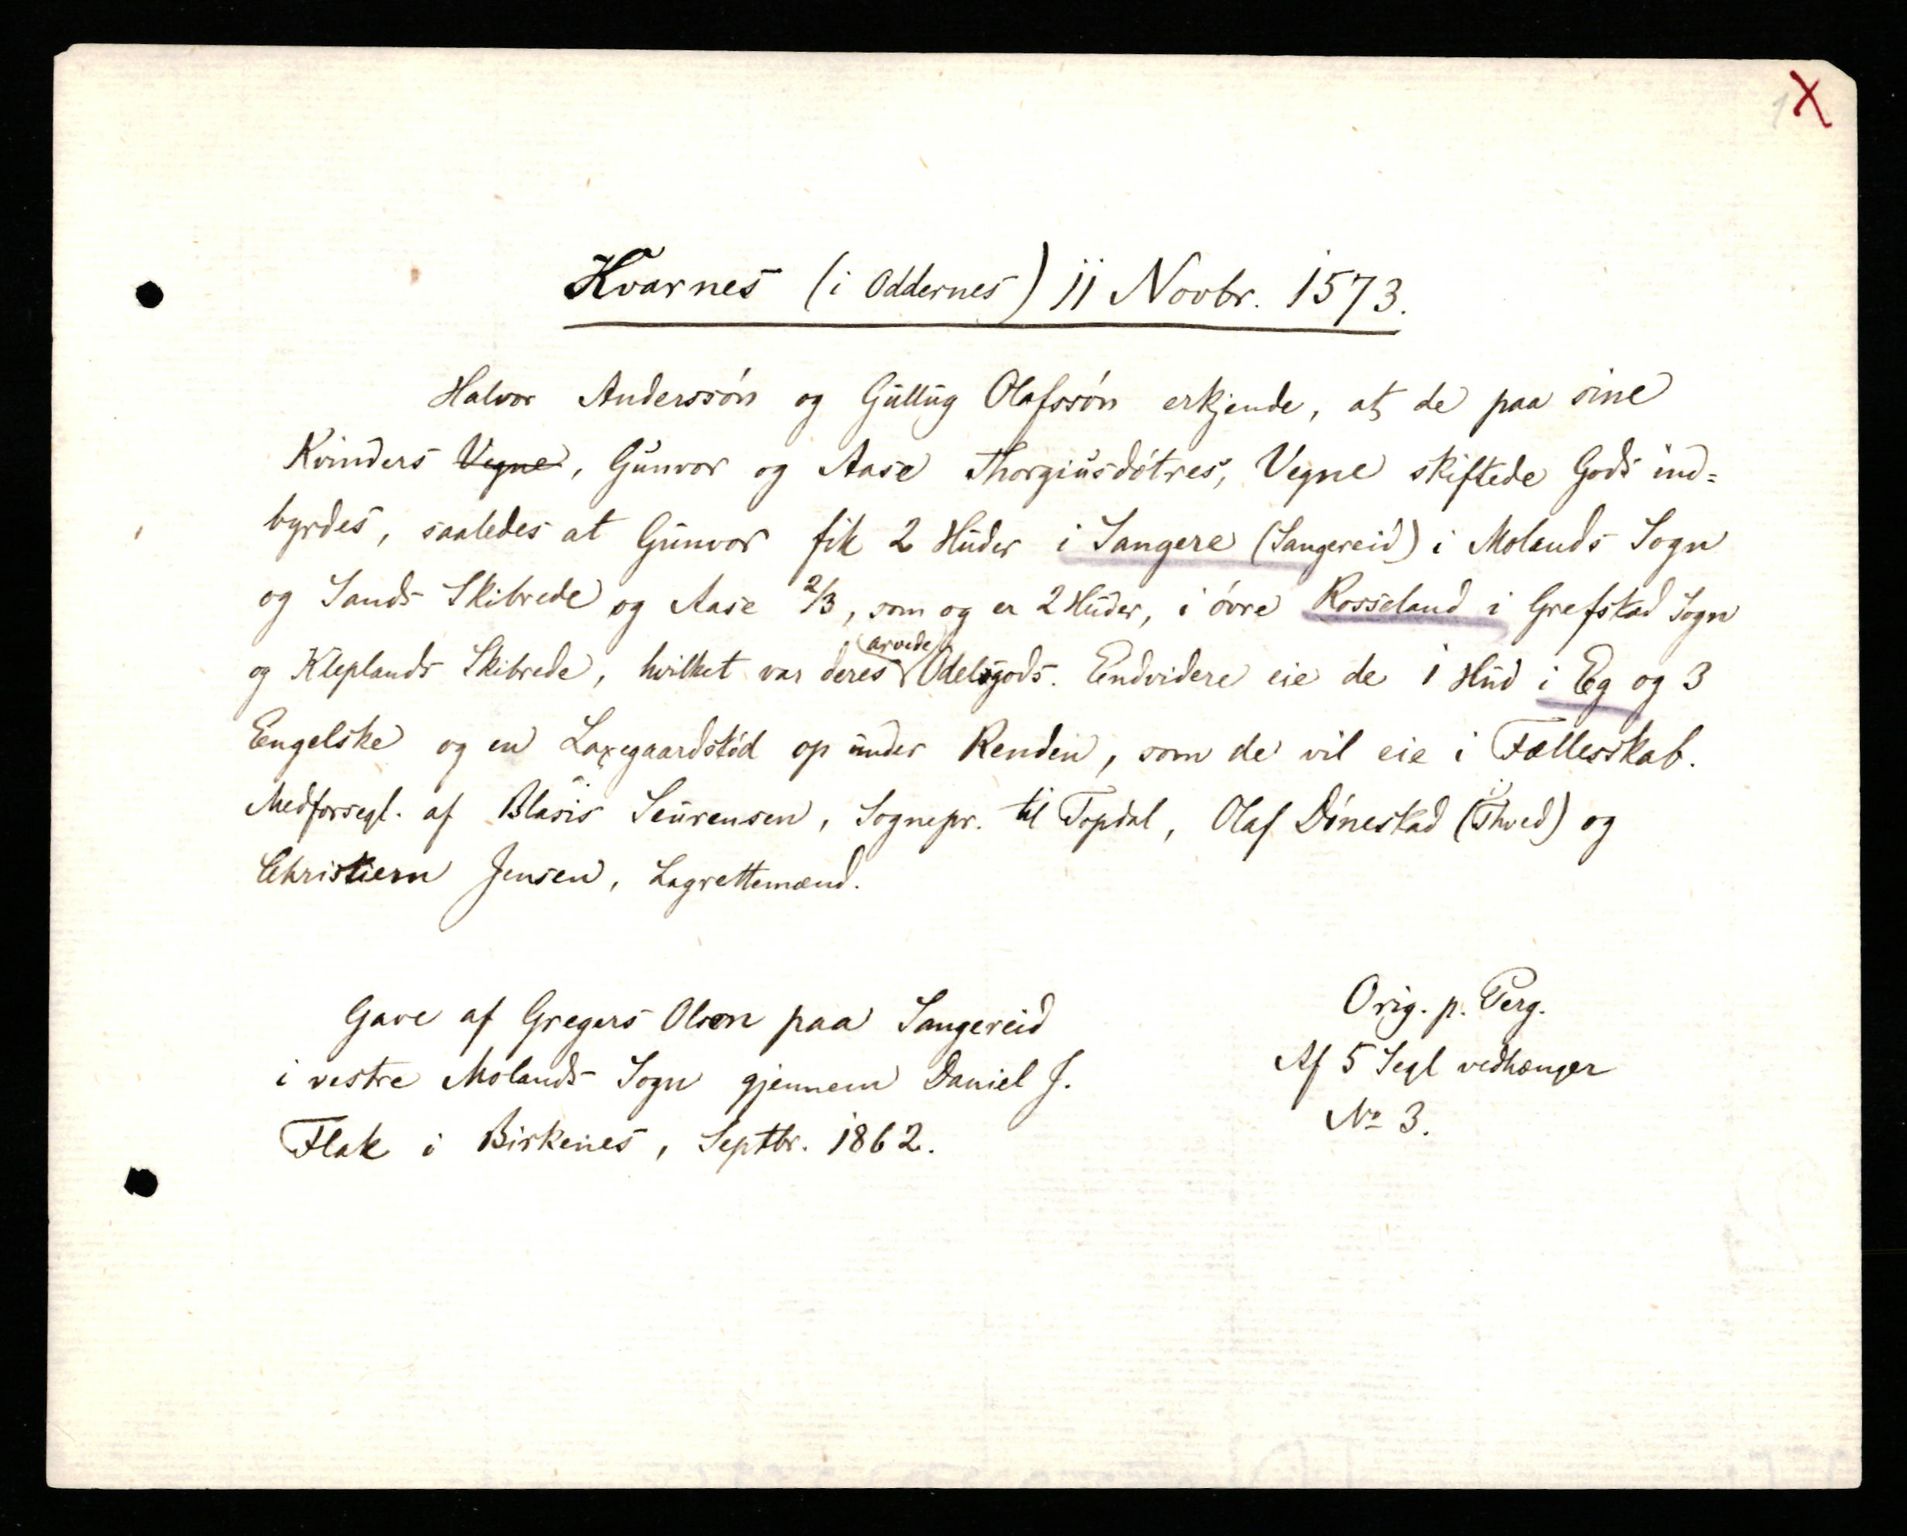 X
Kvarnes (i Oddernes) 11 Novbr. 1573.
Halvor Anderssón og Gullug Olafssón erkjende, at de paa sine
Kvinders Vegne, Gunvor og Aase Thorgiusdótres, Vegne skiftede Gods ind=
byrdes, saaledes at Gunvor fik 2 Huder i Sangere (Sangereid) i Molands Sogn
og Sands Skibrede og Aase 2/3, som og er 2 Huder, i óvre Rosseland i Grefstad Sogn
og Kleplands Skibrede, hvilket var deres arvede Odelsgods. Endvidere eie de 1 Hud i Eg og 3
Engelske og en Laxegaardstód op under Renden, som de vil eie i Fællesskab.
Medforsegl. af Blasis Seurensen, Sognepr. til Topdal, Olaf Dónestad (Thved) og
Christiern Jensen, Lagrettemænd.
Gave af Gregers Olsen paa Sangereid
i vestre Molands Sogn gjennem Daniel J.
Flak i Birkenes, Septbr. 1862.
Orig. p. Perg.
Af 5 Segl vedhænger
No 3.